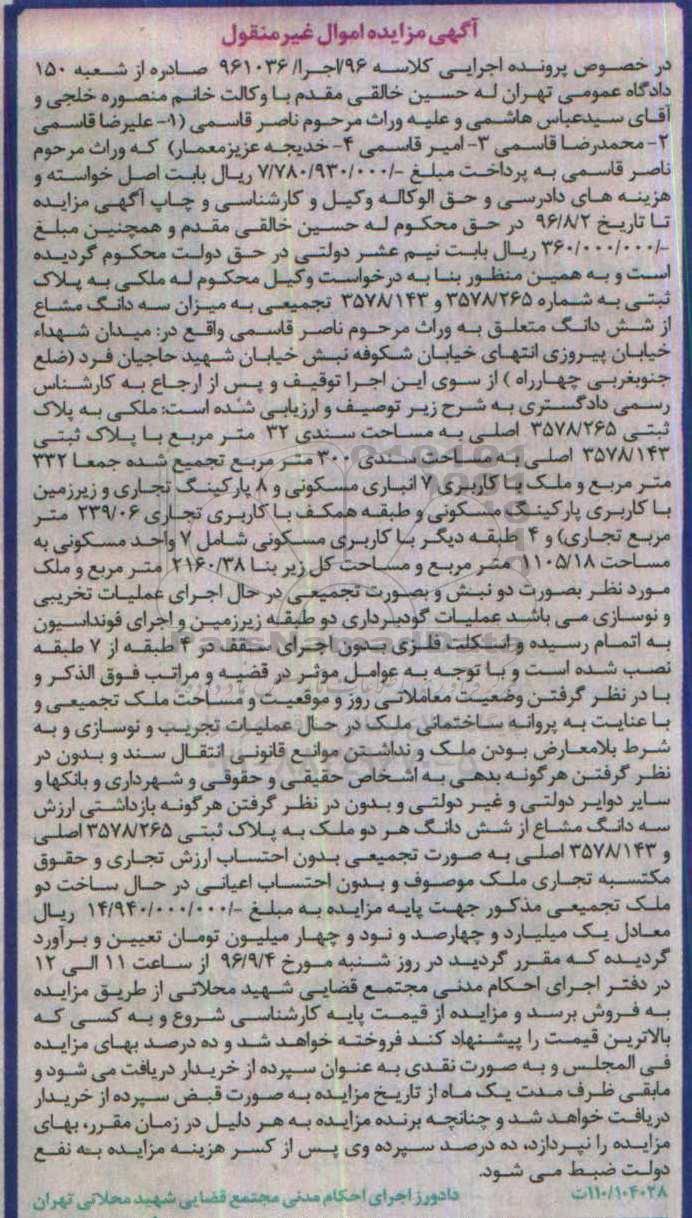 آگهی مزایده اموال غیر منقول
در خصوص پرونده اجرایی کلاسه ۹۶/اجرا/۹۶۱۰۳۶ صادره از شعبه ۱۵۰
دادگاه عمومی تهران له حسین خالقی مقدم با وکالت خانم منصوره خلجی و
آقای سیدعباس هاشمی و علیه وراث مرحوم ناصر قاسمی (۱- علیرضا قاسمی
۲- محمدرضا قاسمی ۳- امیر قاسمی ۴- خدیجه عزیزمعمار) که وراث مرحوم
ناصر قاسمی به پرداخت مبلغ -/۷/۷۸۰/۹۳۰/۰۰۰ ریال بابت اصل خواسته و
هزینه های دادرسی و حق الوکاله وکیل و کارشناسی و چاپ آگهی مزایده
تا تاریخ ۹۶/۸/۲ در حق محکوم له حسین خالقی مقدم و همچنین مبلغ
-/۳۶۰/۰۰۰/۰۰۰ ریال بابت نیم عشر دولتی در حق دولت محکوم گردیده
است و به همین منظور بنا به درخواست وکیل محکوم له ملکی به پلاک
ثبتی به شماره ۳۵۷۸/۲۶۵ و ۳۵۷۸/۱۴۳ تجمیعی به میزان سه دانگ مشاع
از شش دانگ متعلق به وراث مرحوم ناصر قاسمی واقع در: میدان شهداء
خیابان پیروزی انتهای خیابان شکوفه نبش خیابان شهید حاجیان فرد (ضلع
جنوبغربی چهارراه ) از سوی این اجرا توقیف و پس از ارجاع به کارشناس
رسمی دادگستری به شرح زیر توصیف و ارزیابی شده است: ملکی به پلاک
ثبتی ۳۵۷۸/۲۶۵ اصلی به مساحت سندی ۳۲ متر مربع با پلاک ثبتی
۳۵۷۸/۱۴۳ اصلی به مساحت سندی ۳۰۰ متر مربع تجمیع شده جمعا ۳۳۲
متر مربع و ملک با کاربری ۷ انباری مسکونی و ۸ پارکینگ تجاری و زیرزمین
با کاربری پارکینگ مسکونی و طبقه همکف با کاربری تجاری ۲۳۹/۰۶ متر
مربع تجاری) و ۴ طبقه دیگر با کاربری مسکونی شامل ۷ واحد مسکونی به
مساحت ۱۱۰۵/۱۸ متر مربع و مساحت کل زیر بنا ۲۱۶۰/۳۸ متر مربع و ملک
مورد نظر بصورت دو نبش و بصورت تجمیعی در حال اجرای عملیات تخریبی
و نوسازی می باشد عملیات گودبرداری دو طبقه زیرزمین و اجرای فونداسیون
به اتمام رسیده و اسکلت فلزی بدون اجرای سقف در ۴ طبقه از ۷ طبقه
نصب شده است و با توجه به عوامل موثر در قضیه و مراتب فوق الذکر و
با در نظر گرفتن وضعیت معاملاتی روز و موقعیت و مساحت ملک تجمیعی و
با عنایت به پروانه ساختمانی ملک در حال عملیات تخریب و نوسازی و به
شرط بلامعارض بودن ملک و نداشتن موانع قانونی انتقال سند و بدون در
نظر گرفتن هرگونه بدهی به اشخاص حقیقی و حقوقی و شهرداری و بانکها و
سایر دوایر دولتی و غیر دولتی و بدون در نظر گرفتن هرگونه بازداشتی ارزش
سه دانگ مشاع از شش دانگ هر دو ملک به پلاک ثبتی ۳۵۷۸/۲۶۵ اصلی
و ۳۵۷۸/۱۴۳ اصلی به صورت تجمیعی بدون احتساب ارزش تجاری و حقوق
مکتسبه تجاری ملک موصوف و بدون احتساب اعیانی در حال ساخت دو
ملک تجمیعی مذکور جهت پایه مزایده به مبلغ -/۱۴/۹۴۰/۰۰۰/۰۰۰ ریال
معادل یک میلیارد و چهارصد و نود و چهار میلیون تومان تعیین و برآورد
گردیده که مقرر گردید در روز شنبه مورخ ۹۶/۹/۴ از ساعت ۱۱ الی ۱۲
در دفتر اجرای احکام مدنی مجتمع قضایی شهید محلاتی از طریق مزایده
به فروش برسد و مزایده از قیمت پایه کارشناسی شروع و به کسی که
بالاترین قیمت را پیشنهاد کند فروخته خواهد شد و ده درصد بهای مزایده
فی المجلس و به صورت نقدی به عنوان سپرده از خریدار دریافت می شود و
مابقی ظرف مدت یک ماه از تاریخ مزایده به صورت قبض سپرده از خریدار
دریافت خواهد شد و چنانچه برنده مزایده به هر دلیل در زمان مقرر، بهای
مزایده را نپردازد، ده درصد سپرده وی پس از کسر هزینه مزایده به نفع
دولت ضبط می شود.
۱۱۰/۱۰۴۰۲۸ت دادورز اجرای احکام مدنی مجتمع قضایی شهید محلاتی تهران
ParsNamadData